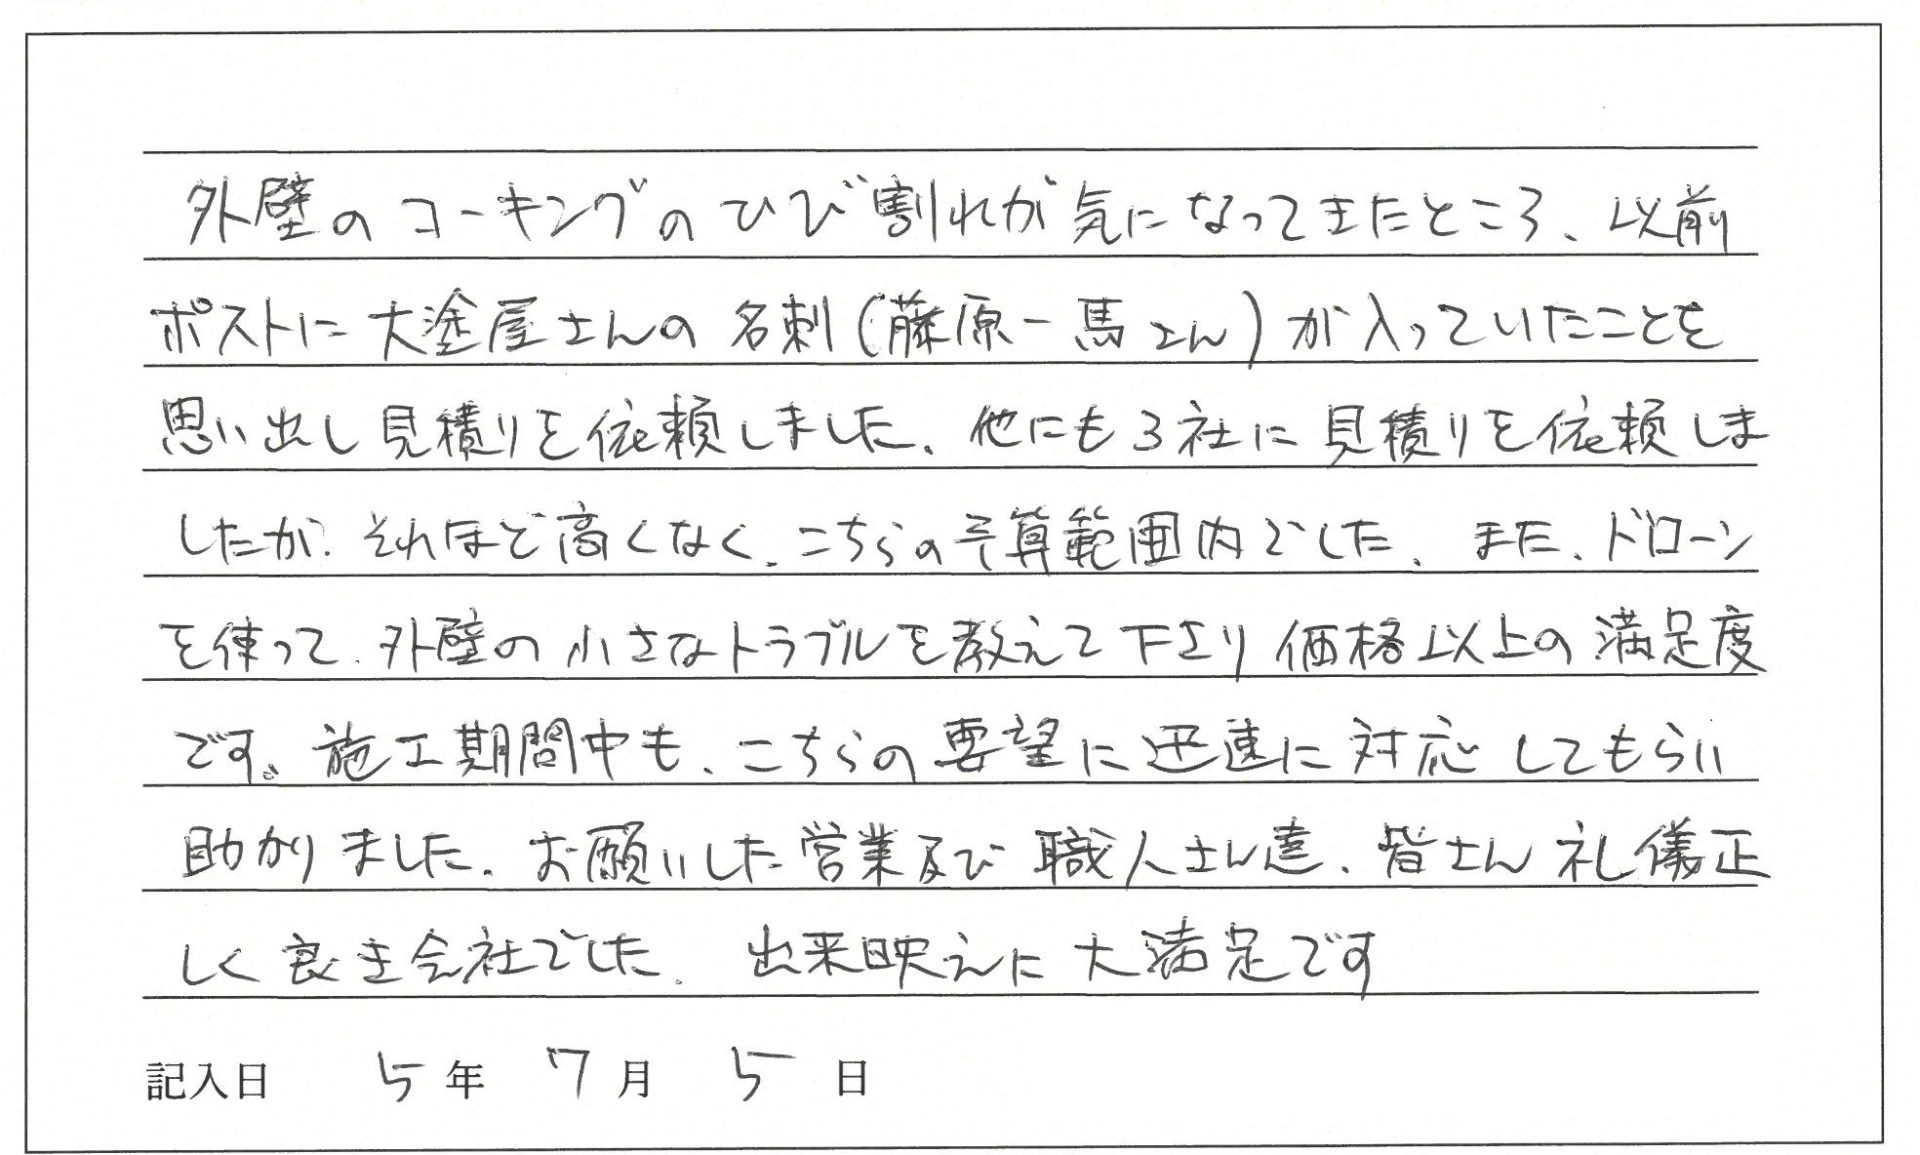 外壁のコーキングのひび割れが気になってきたところ、以前
ポストに大塗屋さんの名刺(藤原一馬さん)が入っていたことを
思い出し見積りを依頼しました。他にも3社に見積りを依頼しま
したが、それほど高くなく、こちらの予算範囲内でした。また、ドローン
を使って、外壁の小さなトラブルを教えて下さり価格以上の満足度
です。施工期間中も、こちらの要望に迅速に対応してもらい
助かりました。お願いした営業及び職人さん達、皆さん礼儀正
しく良き会社でした。出来映えに大満足です
記入日 5年 7月 5日